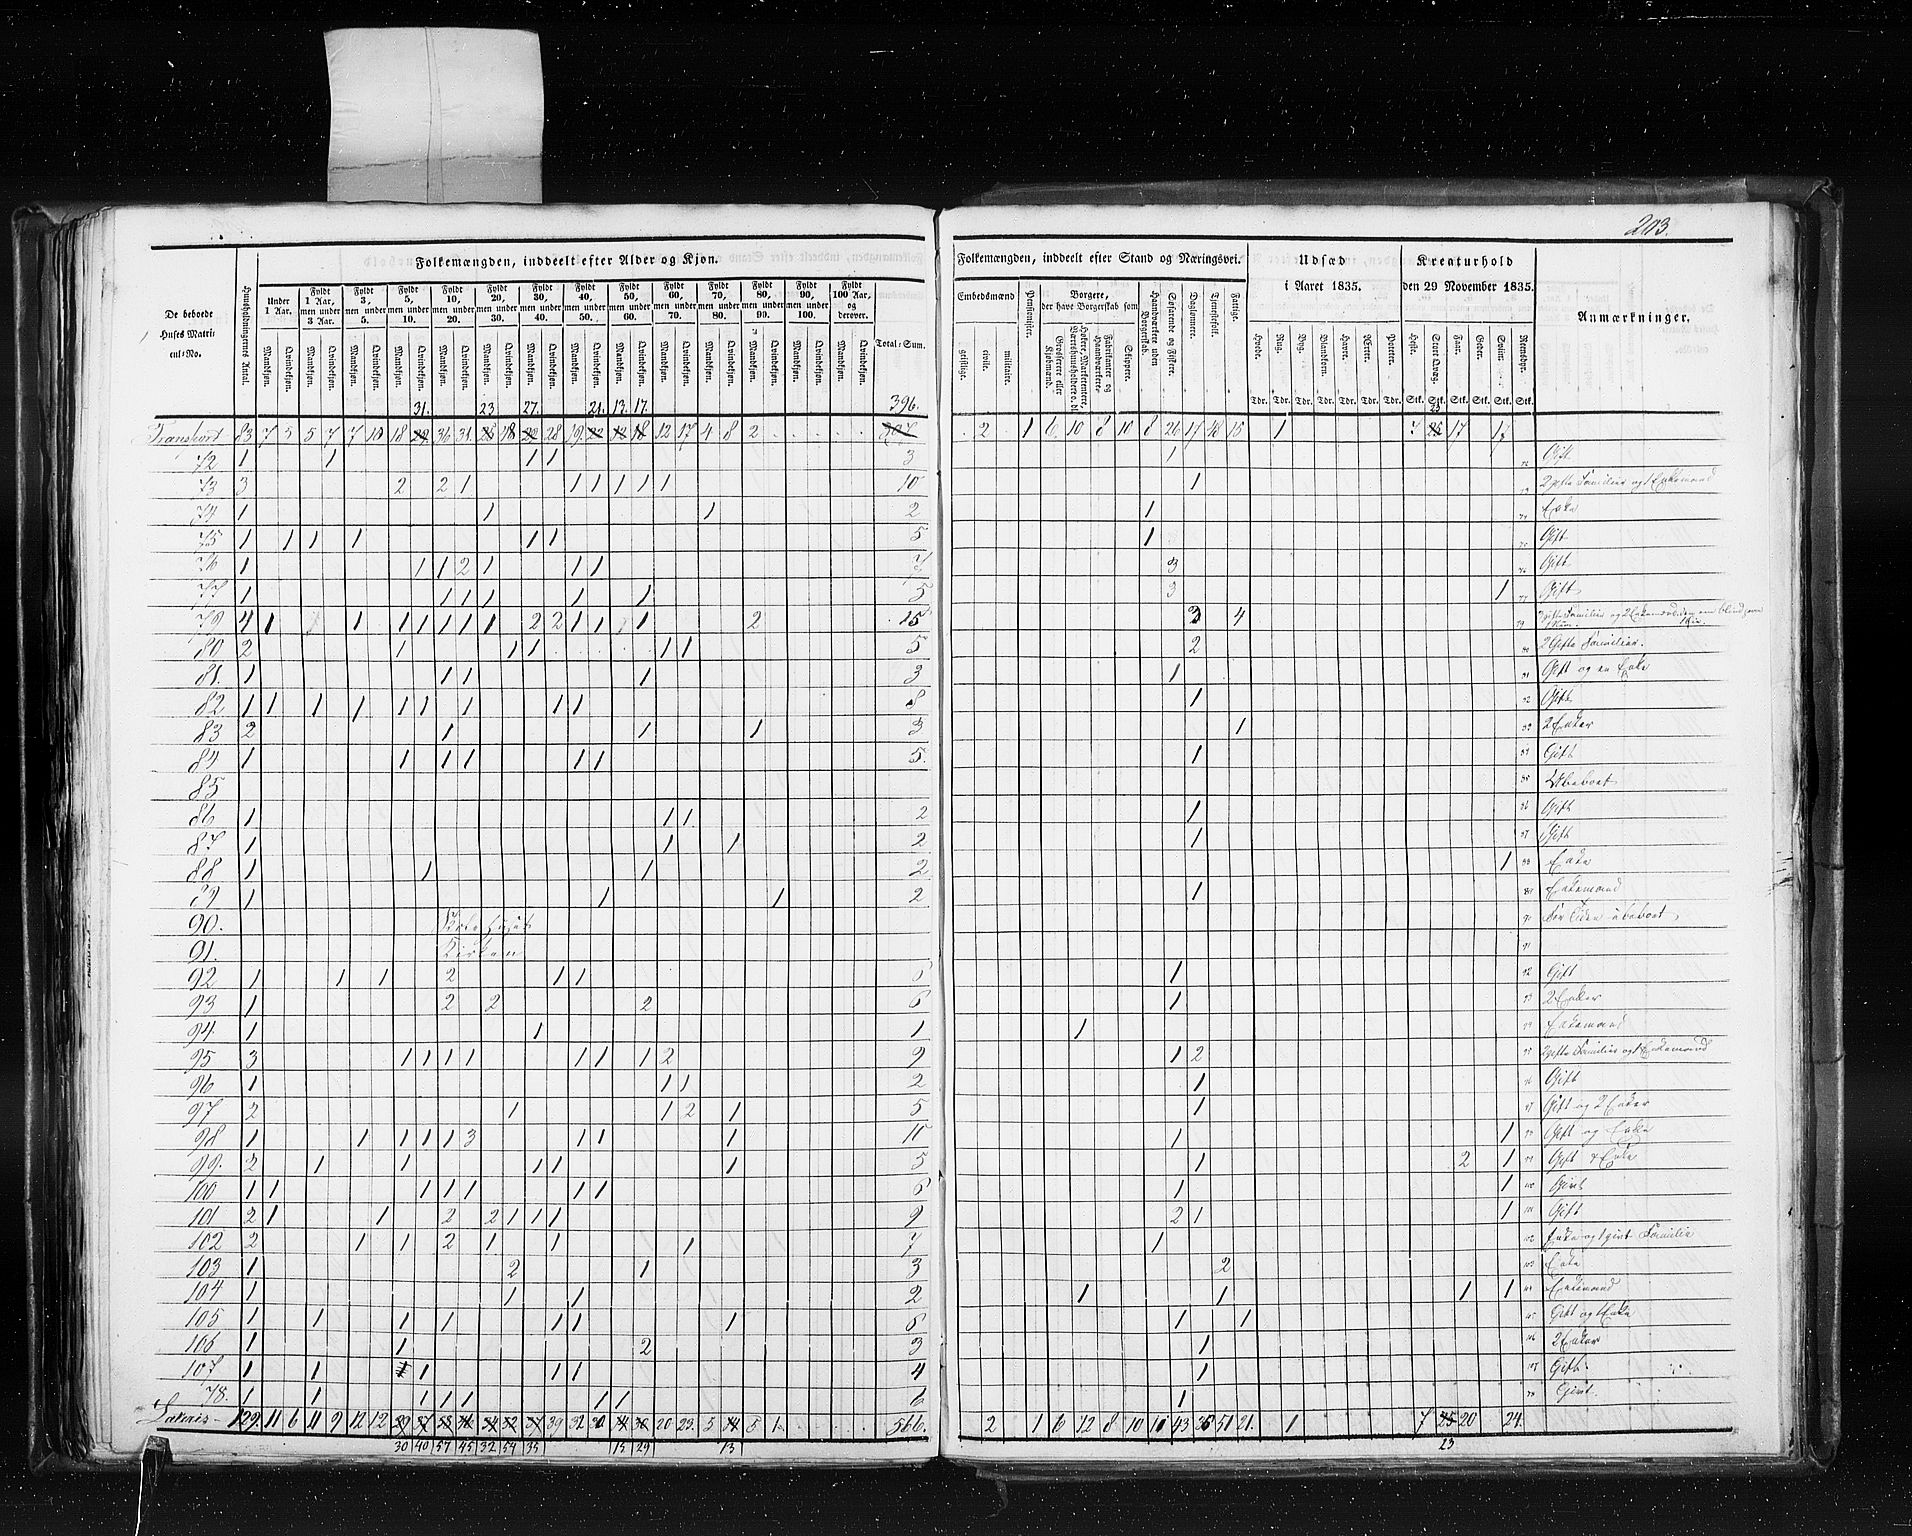 203.
Folkemængden, inddeelt efter Alder og Kjøn.
Folkemængden, inddeelt efter Stand og Næringsvei.
Udsæd i Aaret 1835.
Kreaturhold den 29 November 1835.
Anmærkninger.
De beboede Huses Matricul-No.
Huusholdningernes Antal.
Under 1 Aar.
Fyldt 1 Aar, men under 3 Aar.
Fyldt 3, men under 5.
Fyldt 5, men under 10.
Fyldt 10, men under 20.
Fyldt 20, men under 30.
Fyldt 30, men under 40.
Fyldt 40, men under 50.
Fyldt 50, men under 60.
Fyldt 60, men under 70.
Fyldt 70, men under 80.
Fyldt 80, men under 90.
Fyldt 90, men under 100.
Fyldt 100 Aar, og derover.
Mandkjøn. Qvindekjøn.
Total-Sum.
Embedsmænd
geistlige. civile. militaire.
Pensionister.
Borgere, der have Borgerskab som
Grosserer eller Kjøbmænd.
Fabrikanter og Haandværkere.
Skippere.
Haandværkere uden Borgerskab.
Søfarende og Fiskere.
Daglønnere.
Tjenestefolk.
Fattige.
Hvede. Rug. Byg. Blandkorn. Havre. Ærter. Poteter.
Tdr. Tdr. Tdr. Tdr. Tdr. Tdr. Tdr.
Heste. Stort Qvæg. Faar. Geder. Sviin. Rensdyr.
Stk. Stk. Stk. Stk. Stk. Stk.
31. 23 27. 21. 13. 17. 396.
Transport 83 7 5 5 7 7 10 18 36 31 18 28 19 12 17 4 8 2
2 1 6 10 8 10 8 26 17 18 15 1 7 17 17
72 1 1 1 1 3 1 Gift
73 3 2 2 1 1 1 1 1 1 10 1 2 gifte Familier og 1 Enkemand
74 1 1 1 2 1 Enke
75 1 1 1 1 1 1 5 1 Gift
76 1 1 1 2 1 1 1 7 3 Gift
77 1 1 1 1 1 1 5 3 1 Gift
79 4 1 1 1 1 1 1 1 2 2 1 1 1 2 15 3 4
80 2 1 1 1 1 1 5 2 2 Gifte Familier.
81. 1 1 1 1 3 1 Gift og en Enke
82 1 1 1 1 1 1 1 1 1 8 1 Gift
83 2 1 1 1 3 1 2 Enker
84 1 1 1 1 1 1 5. 1 Gift
85 Ubeboet
86 1 1 1 2 1 Gift
87 1 1 1 2 1 Gift
88 1 1 1 2 1 Enke
89 1 1 1 2 1 Enkemand
90.
91. Kirken
92 1 1 1 2 1 1 6 1 Gift
93 1 2 2 2 6 1 2 Enker
94 1 1 1 1 Enkemand
95 3 1 1 1 1 1 1 1 2 9 1 2 2 gifte Familier og 1 Enkemand
96 1 1 1 2 1 Gift
97 2 1 1 2 1 5 1 Gift og 2 Enker
98 1 1 1 1 1 3 1 1 1 1 1 Gift og Enke
99. 2 1 1 1 1 1 5 1 2 1 Gift & Enke
100 1 1 1 1 1 1 1 6 1 1 Givt
101 2 1 1 2 2 1 1 1 9 2 1 1 Gift
102 2 1 1 2 1 1 1 7 1 Enke og 1 givt Familie
103 1 2 1 3 2 Enke
104 1 1 1 2 1 1 1 1 Enkemand
105 1 1 1 1 1 1 1 6 1 1 Gift og 1 Enke
106 1 1 2 3 1 2 Enker
107 1 1 1 1 1 4 1 Gift
78. 1 1 1 1 1 1 1 6 1 Givt.
129. 11 6 11 9 12 12 39 32 20 23. 5 5 1 566.
2 1 6 12 8 10 10 43 51 21. 1 7 20 24.
30 40 57 45 32 54 35 15 29 13 23